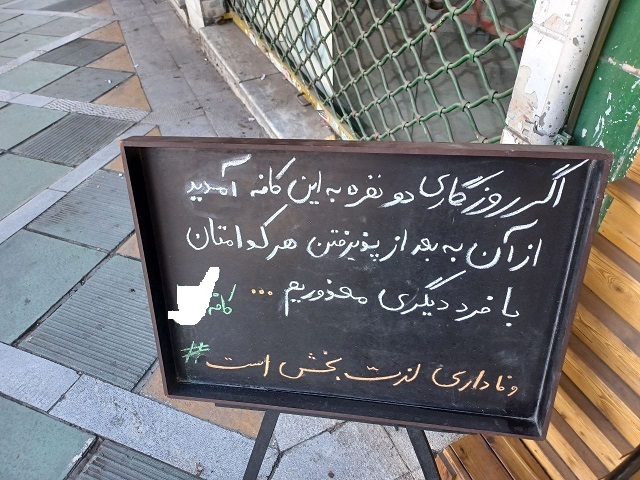 اگر روزگاری دو نفره به این کافه آمدید
از آن به بعد از پذیرفتن هر کدامتان
با فرد دیگری معذوریم ...
کافه
وفاداری لذت بخش است #